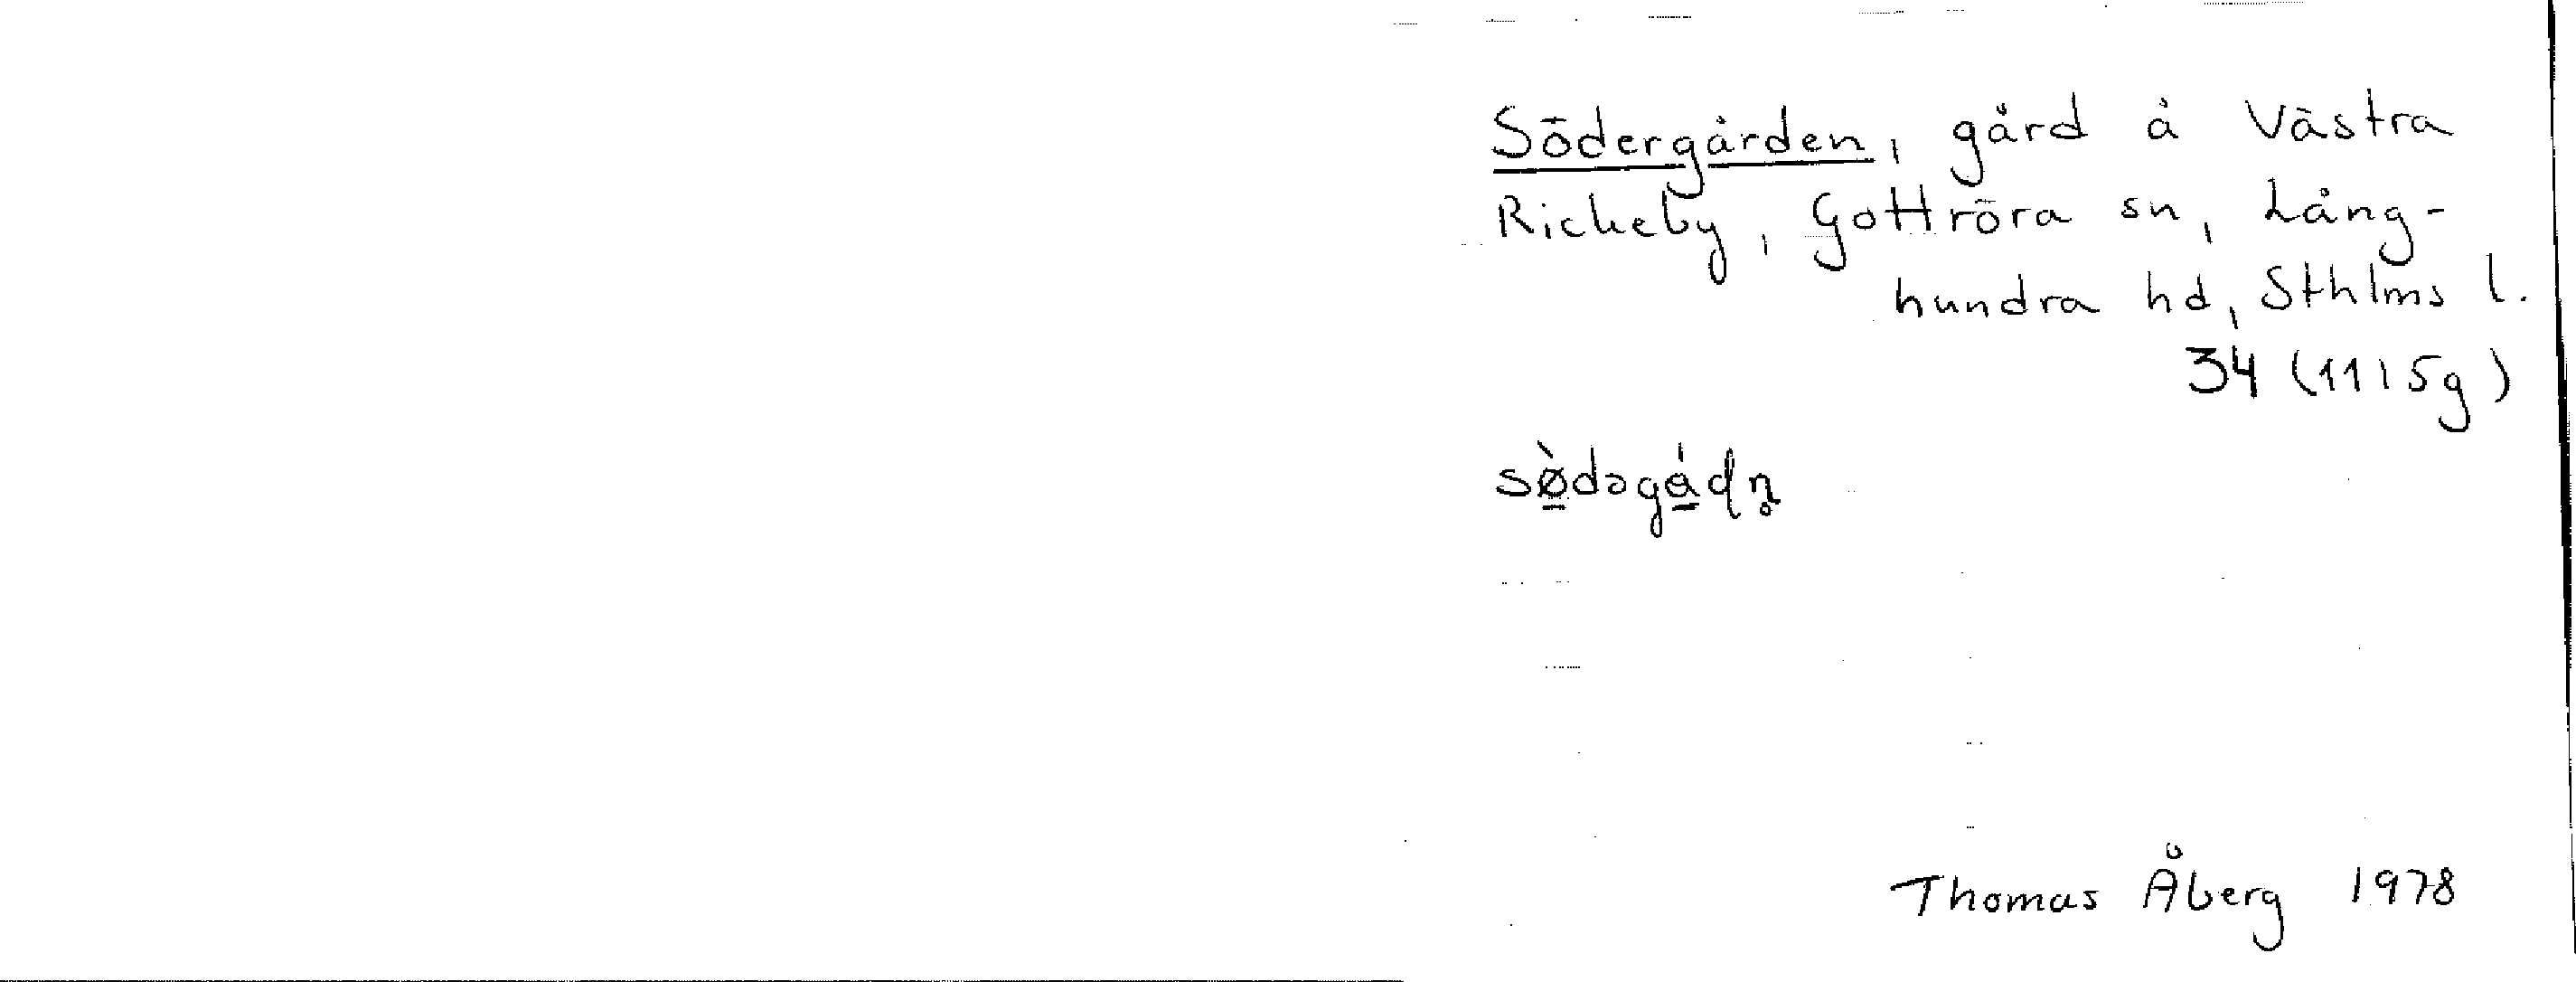 Södergården, gård å Västra
Rickeby, Gottröra sn, Lång-
hundra hd, Sthlms l.
34 (1115g)
sø̀dəgådn̥
Thomas Åberg 1978